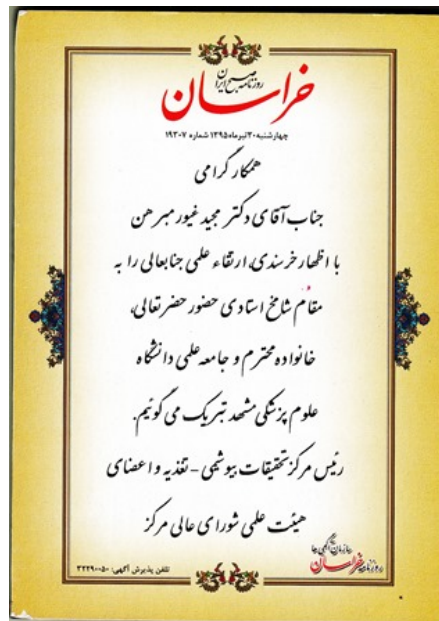 روزنامه صبح ایران
خراسان
چهارشنبه ۳۰ تیر ماه ۱۳۹۵ شماره ۱۹۳۰۷
همکار گرامی
جناب آقای دکتر مجید غیور مبرهن
با اظهار خرسندی، ارتقاء علمی جنابعالی را به
مقام شامخ استادی حضور حضرتعالی،
خانواده محترم و جامعه علمی دانشگاه
علوم پزشکی مشهد تبریک می گوئیم.
رئیس مرکز تحقیقات بیوشیمی - تغذیه و اعضای
هیئت علمی شورای عالی مرکز
سازمان آگهی ها
روزنامه خراسان
تلفن پذیرش آگهی: ۳۲۲۹۰۰۵۰